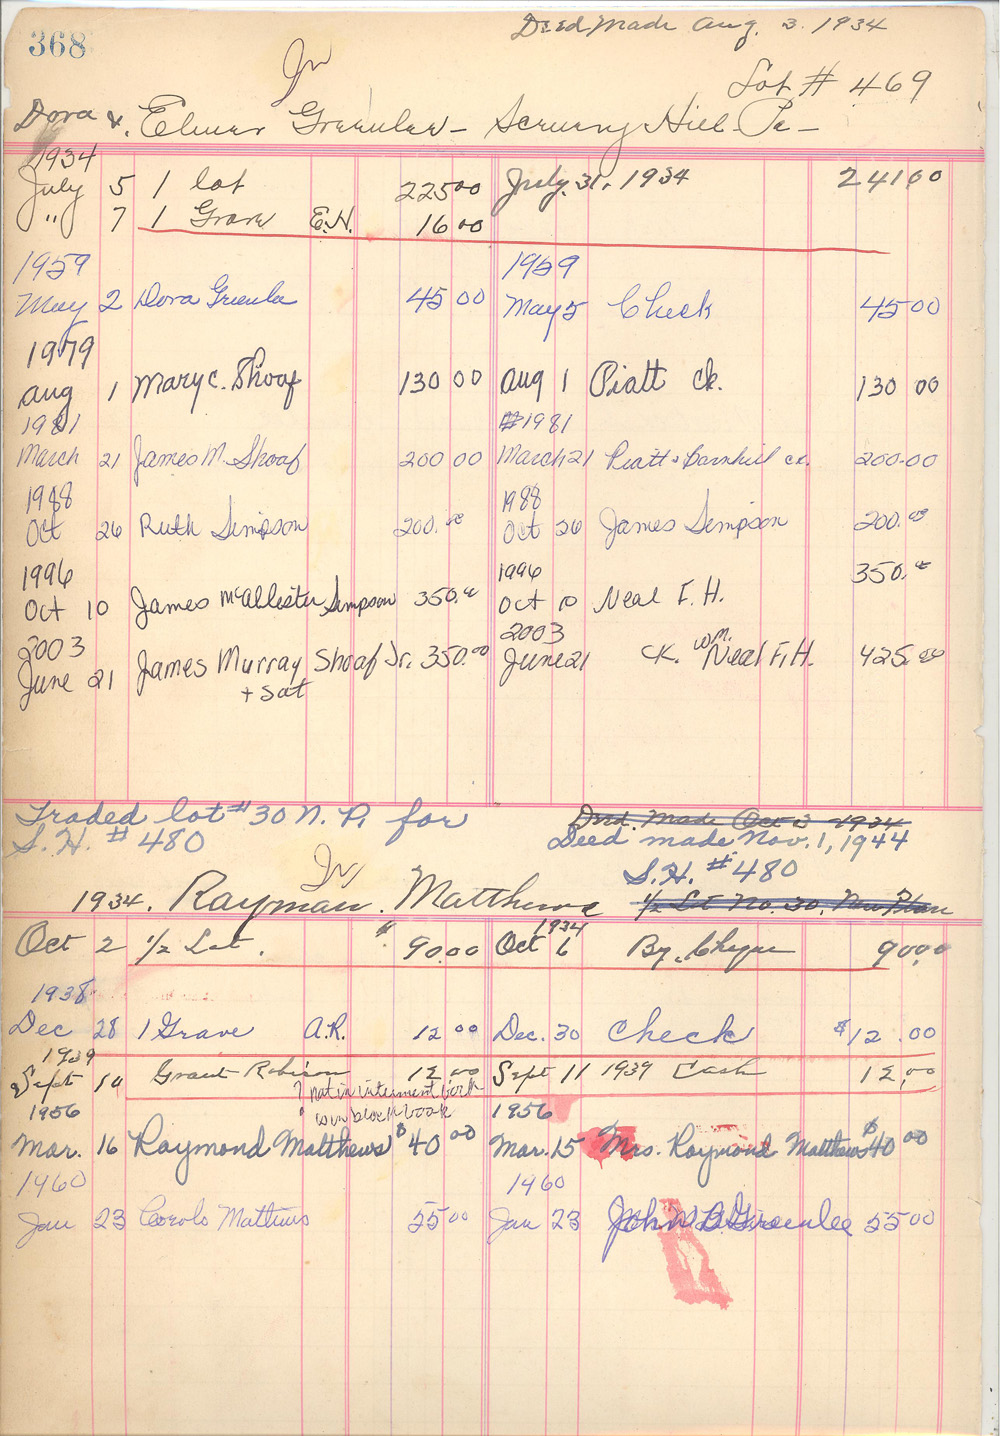 Deed Made Aug. 3. 1934
368
In
Lot # 469
Dora & Elmer Greenlee - Scenery Hill Pa -
1934
July 5 1 lot 225 00 July. 31, 1934 241 00
" 7 1 Grave E.H. 16 00
1959 1959
May 2 Dora Greenlee 45 00 May 5 Check 45 00
1979
Aug 1 Mary C. Shoaf 130 00 Aug 1 Piatt ck. 130 00
1981 1981
March 21 James M. Shoaf 200 00 March 21 Piatt & Barnhill ck. 200.00
1988 1988
Oct 26 Ruth Simpson 200.00 Oct 26 James Simpson 200.00
1996 1996 350.00
Oct 10 James McAllister Simpson 350.00 Oct 10 Neal F.H.
2003 2003
June 21 James Murray Shoaf Jr. 350.00 June 21 CK. Wm. Neal F.H. 425.00
+ Sat
Traded lot # 30 N. P. for Deed. Made Oct 3 1934
S. H. # 480 Deed made Nov. 1, 1944
In S.H. # 480
1934. Rayman. Matthews 1/2 Lot No. 30. New Plan
1934
Oct 2 1/2 Lot. $ 90.00 Oct 6 By. Cheque 90.00
1938
Dec 28 1 Grave A.R. 12 00 Dec. 30 Check $12.00
1939
Sept 10 Grant Robison 12.00 Sept 11 1939 Cash 12.00
? not in interment book
is in block book
1956 1956
Mar. 16 Raymond Matthews $40 00 Mar. 15 Mrs. Raymond Matthews $40 00
1960 1960
Jan 23 Matthews 55 00 Jan 23 John B. Greenlee 55 00